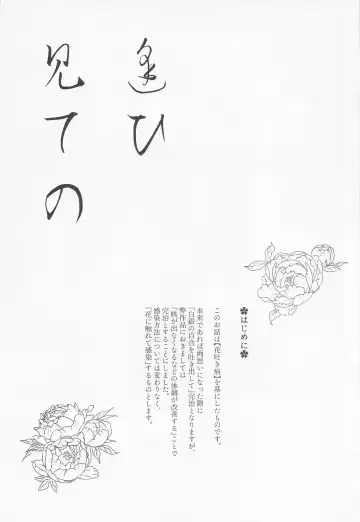 逢ひ
見ての
✽はじめに✽
このお話は【花吐き病】を基にしたものです。
本来であれば両思いになった際に
『白銀の百合を吐き出して』完治となりますが、
弊作品におきましては
『咳が出なくなるなどの体調が改善する』ことで
完治とすることにしました。
感染方法については変わりなく、
『花に触れて感染』するものとします。